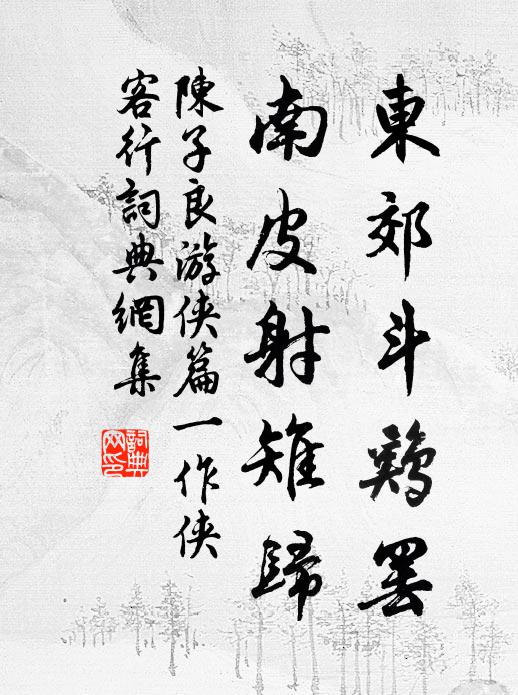 東郊斗鷄罷
南皮射雉歸
陳子良游俠篇一作俠
客行詞典網集
詞典网印